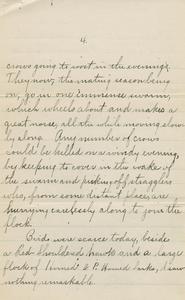 4.
crows going to roost in the evenings.
They now, the mating season being
on, go in one immense swarm,
which wheels about and makes a
great noise, all the while moving slow-
ly along. Any number of crows
could be killed on a windy evening,
by keeping to cover in the wake of
the swarm and picking off stragglers
who, from some distant place, are
hurrying carelessly along to join the
flock.
Birds were scarce today, beside
a Red Shouldered hawk and a large
flock of Horned & P. Horned Larks, I saw
nothing remarkable.